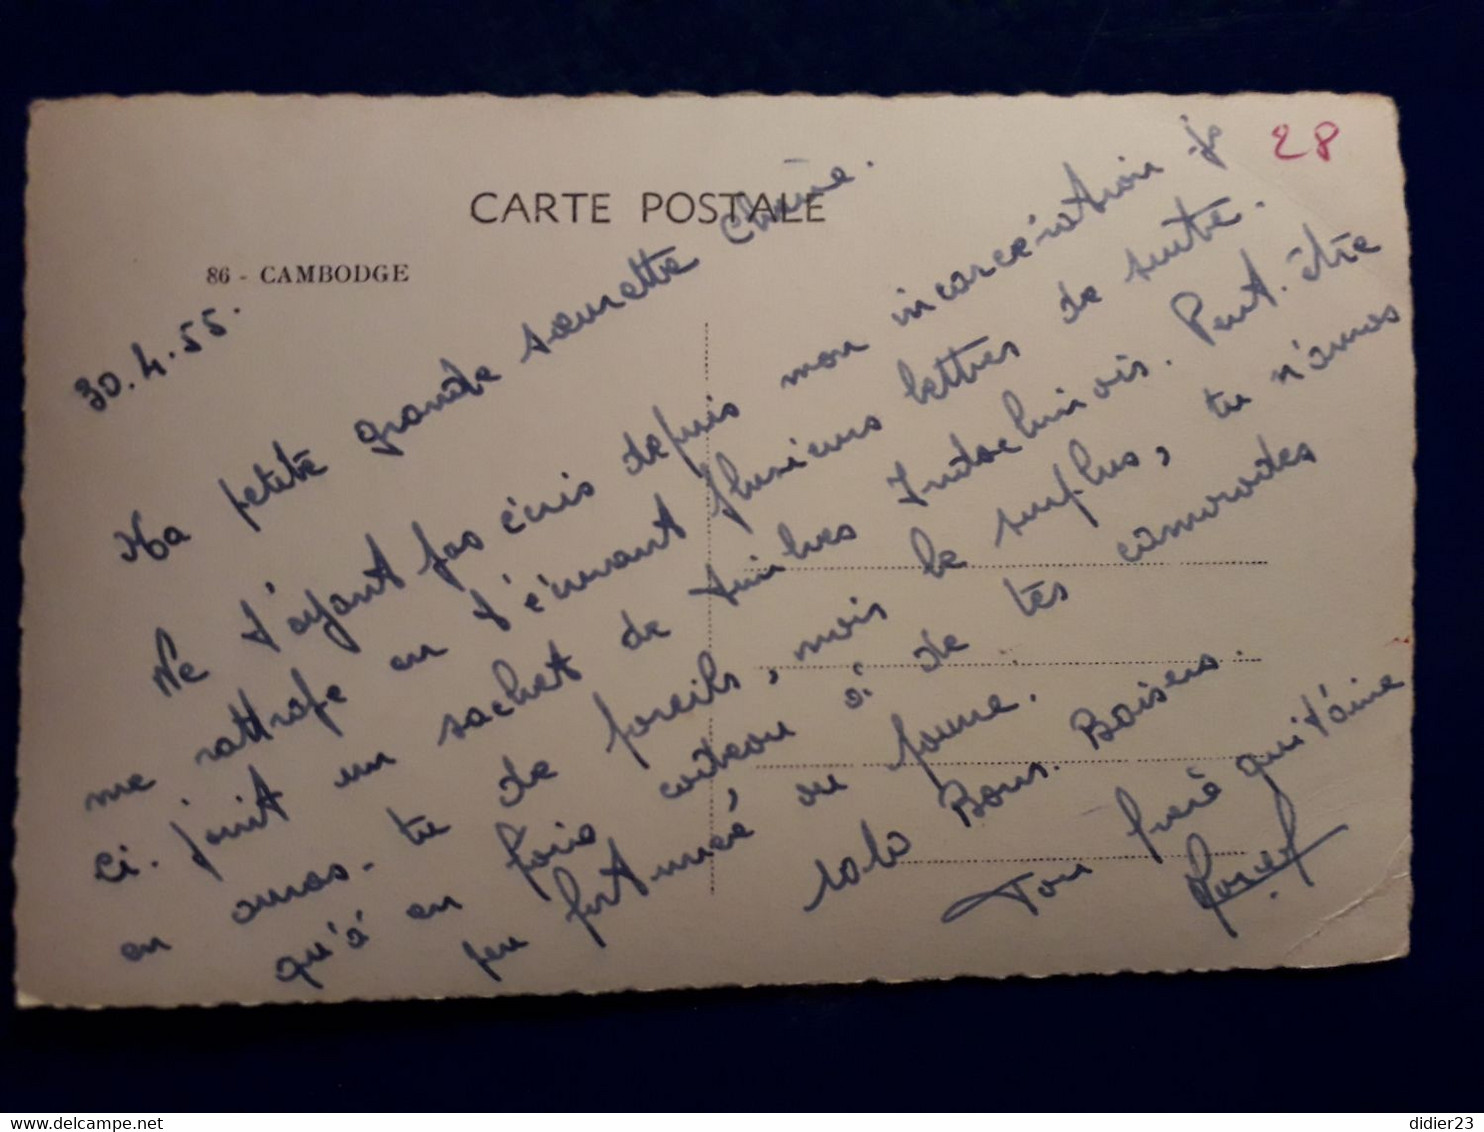 CARTE POSTALE
86 - CAMBODGE
28
30.4.55.
Ma petite grande sœurette chérie.
Ne t'ayant pas écris depuis mon incarcération je
me rattrape en t'écrivant plusieurs lettres de suite.
Ci-joint un sachet de timbres Indochinois. Peut-être
en auras-tu de pareils, mais le surplus, tu n'auras
qu'à en fois cadeau à de tes camarades
peu fortunée ou
Bons Baisers.
Ton frère qui t'aime
www.delcampe.net
didier23